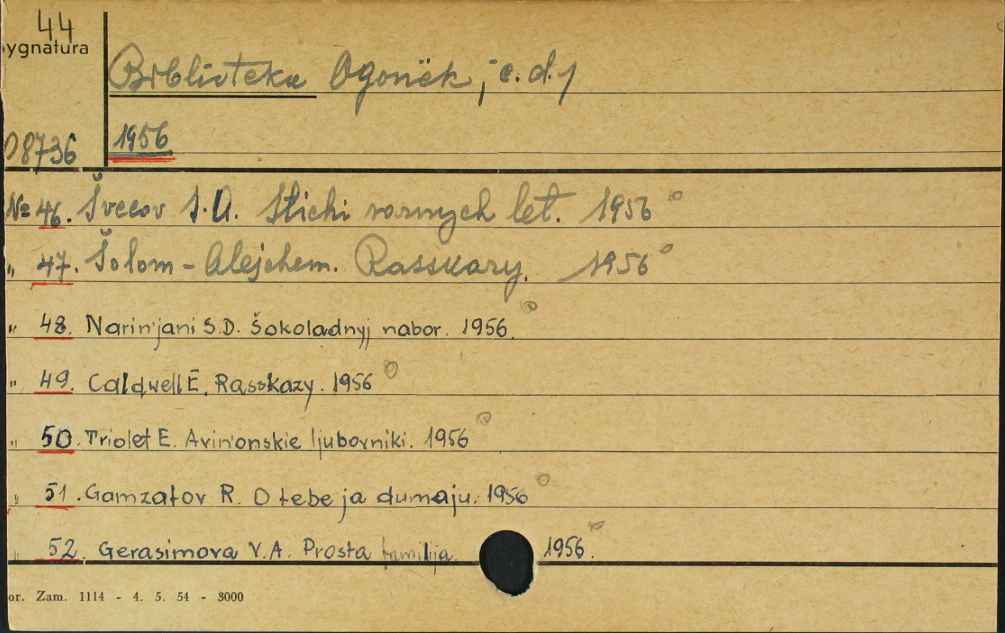 44
ygnatura
Biblioteka Ogonëk, c. d.
08736
1956
№ 46. Švecov S.A. Stichi raznych let. 1956
" 47. Šolom-Alejchem. Rasskazy. 1956
" 48. Narin'jani S.D. Šokoladnyj nabor. 1956.
" 49. Caldwell E. Rasskazy. 1956
" 50. Triolet E. Avin'onskie ljubovniki. 1956
" 51. Gamzatov R. O tebe ja dumaju. 1956
" 52. Gerasimova V.A. Prosta familija. 1956.
or. Zam. 1114 - 4. 5. 54 - 3000